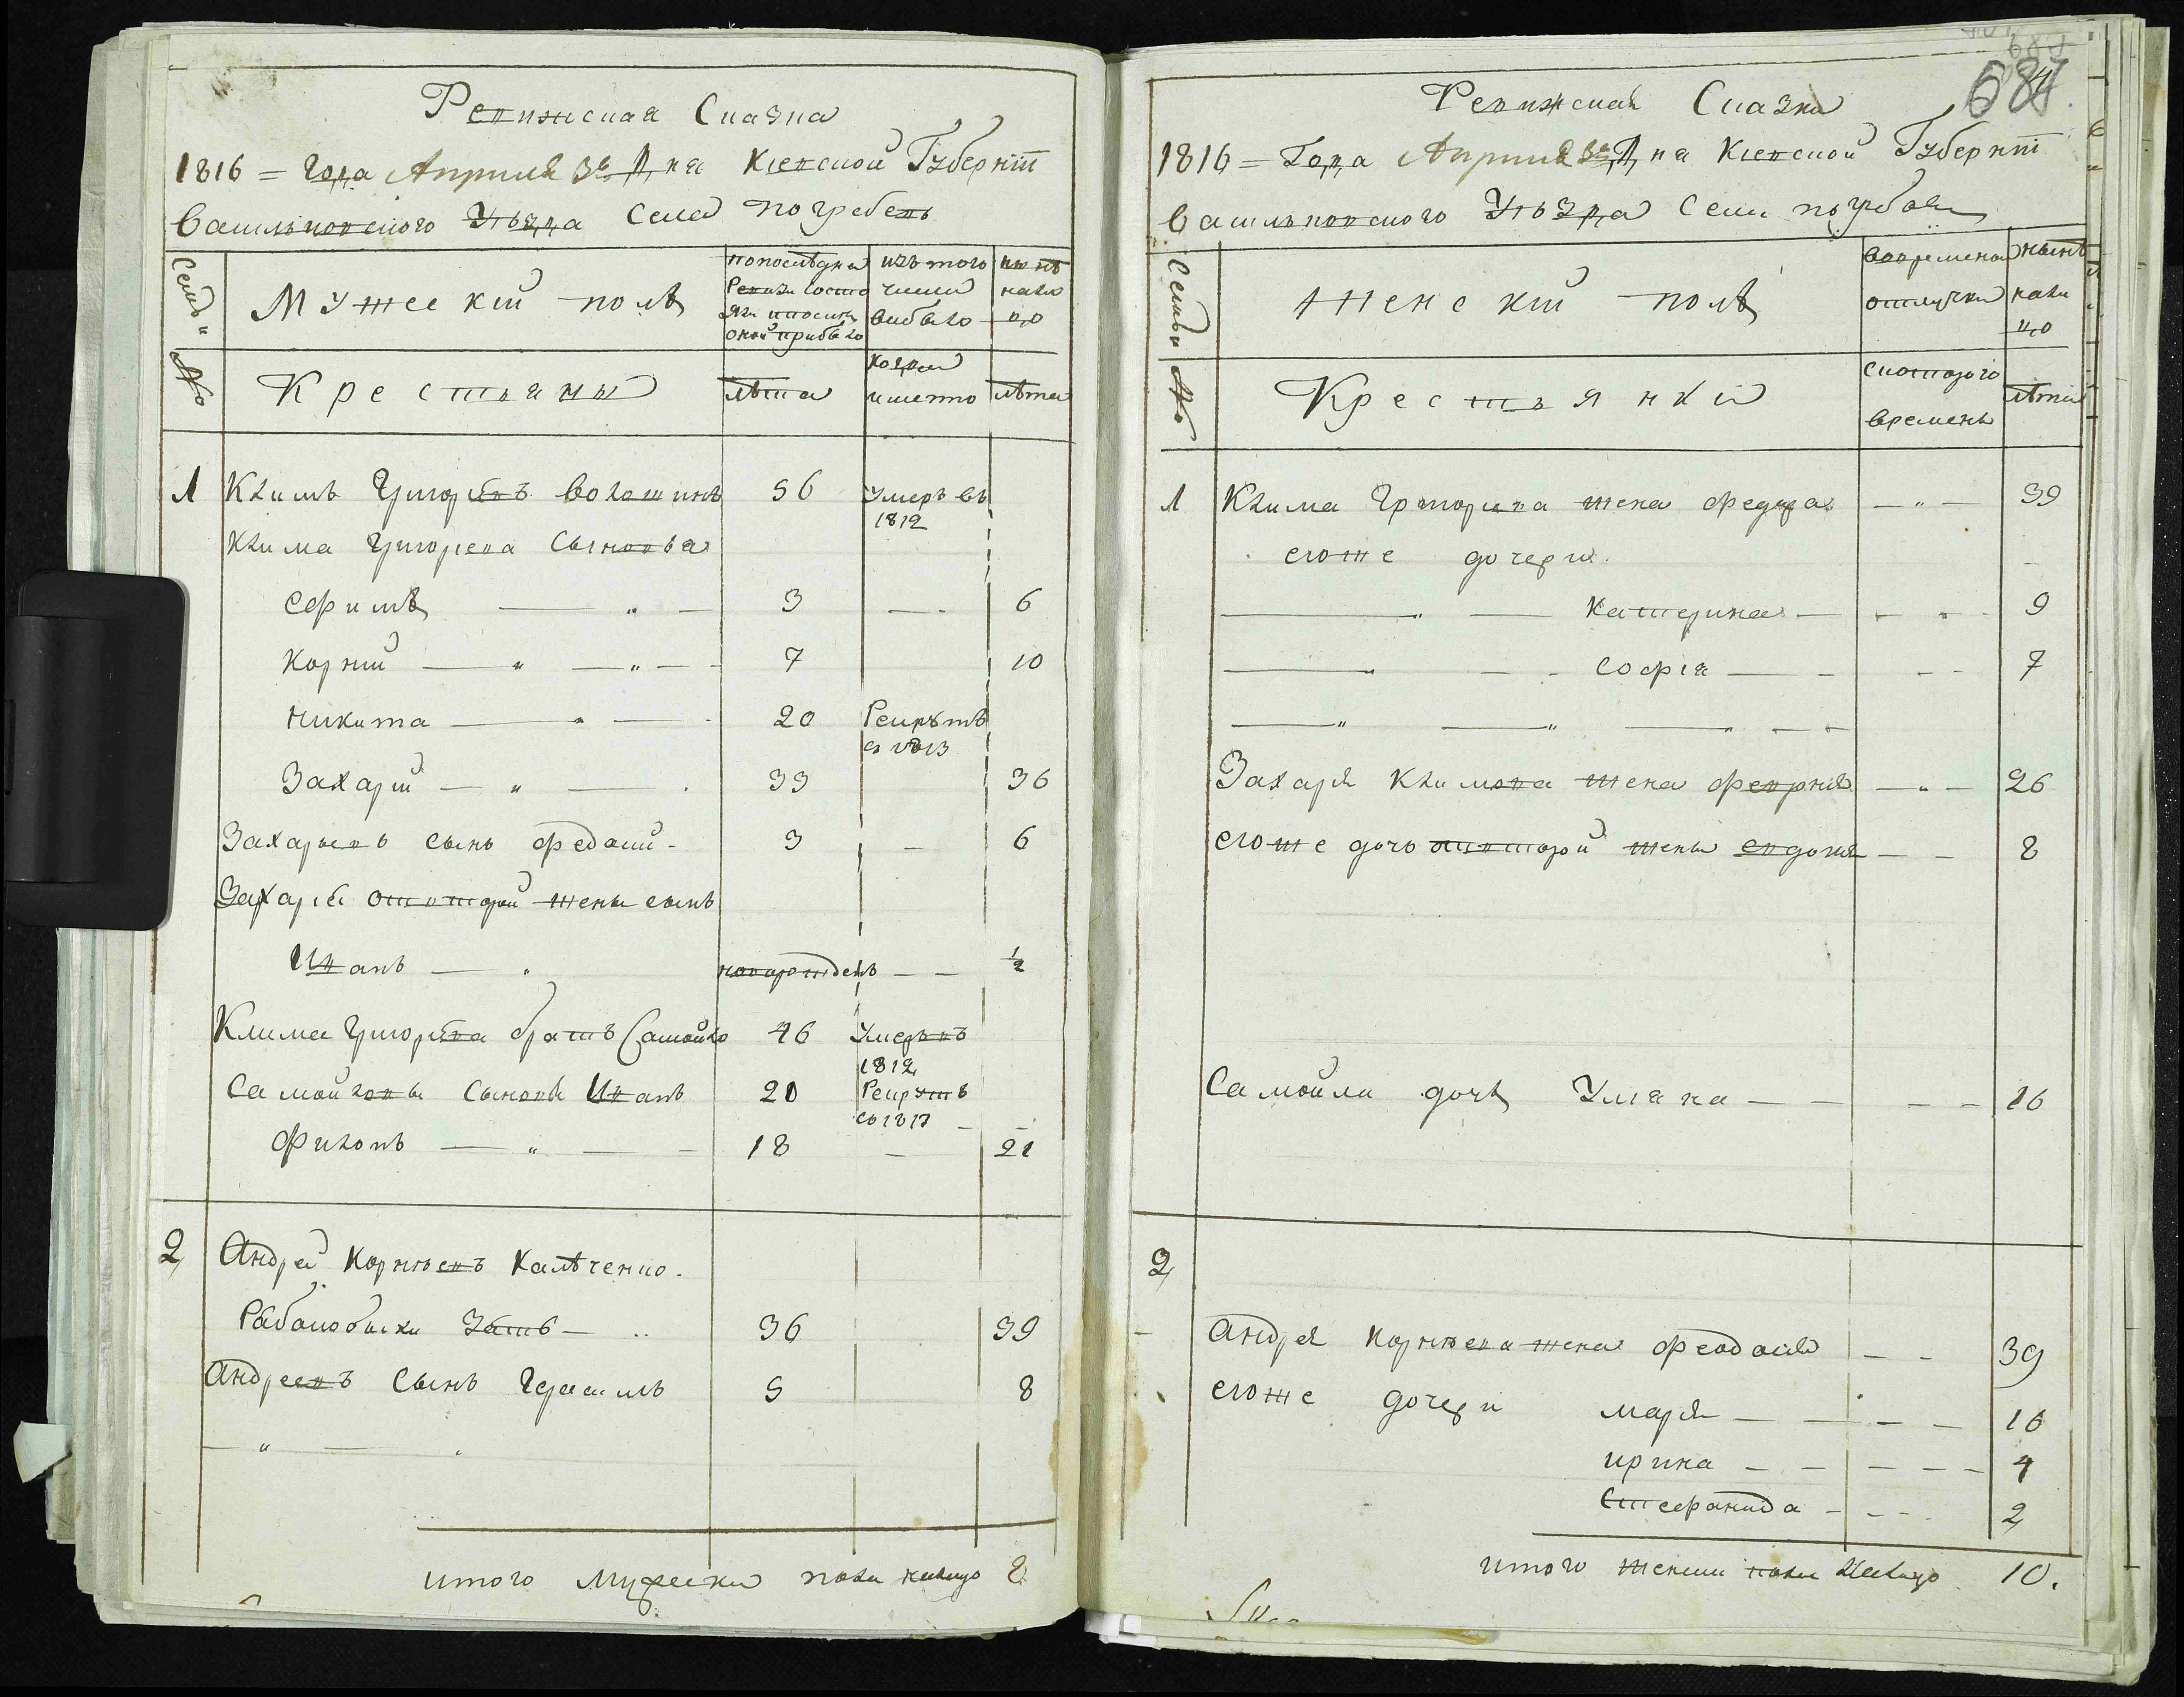 Ревижская Сказка
1816 = Года Апреля 3го Дня Кіевской Губерніи
Васильковского Уѣзда Села Погребовъ
Семьи
№
Мужескій полъ
Крестьяны
попослѣдней Ревизи состояли ипослѣ оной прибыло
лѣта
изътого числа выбыло
когда имѣнно
нынѣ налицо
лѣта
1 Климъ Григорѣвъ Волошинъ 56 Умеръ въ 1812
Клима Григорева Сыновья
Ефимъ 3 6
Корній 7 10
Никита 20 Рекрутъ съ 1813
Захарій 33 36
Захарьевъ сынъ Федосій 3 6
Захарія отвторой жены сынъ
Иванъ новорожденъ ½
Клима Григорѣва братъ Самойло 46 Умеръ въ 1812
Самойловы Сыновя Иванъ 20 Рекрутъ со 1813
Филонъ 18 21
2 Андрей Корнѣевъ Калѣченко
Зать 36 39
Андреевъ Сынъ Герасимъ 5 8
итого мужеска пола налицо 8
687
Ревижская Сказка
1816 = Года Апреля 3го Дня Кіевской Губерніи
Васильковского Уѣзда Села Погребовъ
Семьи
№
Женскій полъ
Крестьянки
вовременной отлучки
скоторого времены
нынѣ налицо
лѣта
1 Клима Григорева жена Федора 39
егоже дочери
Катерина 9
Софія 7
Захаря Климова жена Феврония 26
егоже дочь отвторой жены Евдокия 8
Самойла дочь Уляна 16
2
Андрея Корнѣева жена Феодосия 39
егоже дочери Маря 16
Ирина 4
Стефанида 2
итого женска пола налицо 10.